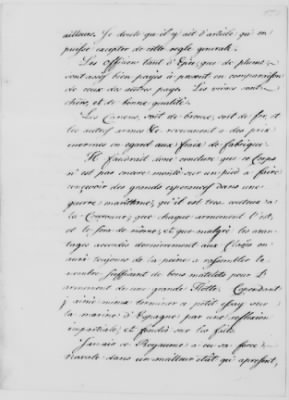 ailleurs. Je doute qu'il y ait d'article qu'on
puisse excepter de cette regle generale.
Les Officiers tant d'Epée, que de plume
sont assez bien payés à present en comparaison
de ceux des autres pays. Les vivres sont
chers, et de bonne qualité.
Les Canons, soit de bronze, soit de fer, et
les autres armes &c. reviennent a des prix
enormes en egard aux fraix de fabrique.
Il faudroit donc conclure que ce Corps
n'est pas encore monté sur un pied a faire
concevoir des grandes esperances dans une
guerre maritime; qu'il est tres couteux a
la Couronne, que chaque armement l'est,
et le sera de même; et que malgré les avan-
tages accordés dernierement aux
aura toujours de la peine a rassembler le
nombre suffisant de bons matelots pour l'
armement de une grande flotte. Cependant
j'aime mieux terminer ce petit essay sur
la marine d'Espagne par une reflexion
impartiale, et fondée sur les faits.
Jamais ce Royaume n'a eu sa force
navale dans un meilleur etat qu'a present,